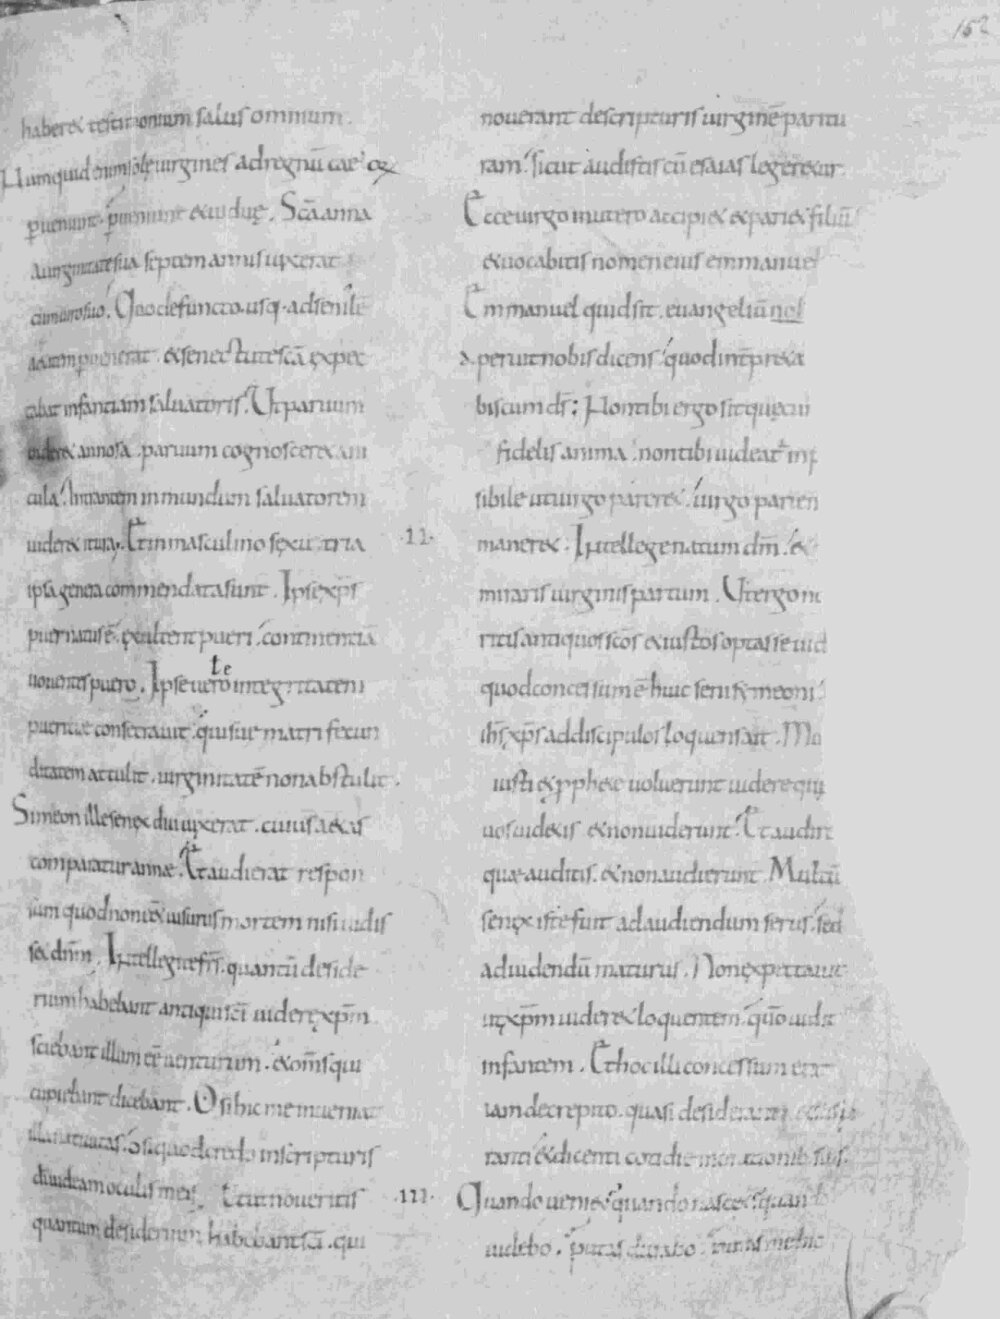 152
haberet testimonium salus omnium.
Numquid enim sole uirgines ad regnū cae oʀ
ꝑueniunt. ꝑueniunt et uiduę. Scā anna
a uirginitate sua septem annis uixerat
cum uiro suo. Quo defuncto. usq· ad senilē
aetatem peruenerat. et senectute scā expec
tabat infantiam saluatoris. Ut paruum
uideret annosa. paruum cognosceret ani
cula. Intrantem in mundum saluatorem
uideret itura. Et in masculino sexu tria
ipsa genera commendata sunt. Ipse xp̄s
puer natus ē. exultent pueri. continentiā
uouentes puero. Ipse uero integritatem
te
pueritiae consecrauit. qui suae matri fecun
ditatem attulit. uirginitatē non abstulit.
Simeon ille senex diu uixerat. cuius aetas
comparatur annae. Et audierat respon
sum quod non eēt uisurus mortem nisi uidis
set dn̄m. Intellegite fr̄s. quantū deside
rium habebant antiqui scī uidere xp̄m
sciebant illum eē uenturum. et om̄s qui
cupiebant dicebant. O si hic me inueniat
illa natiuitas. O si quod credo in scripturis
dī uideam oculis meis. Et ut noueritis
quantum desiderium habebant scī. qui
nouerant de scripturis uirginē paritu
ram. sicut audistis cū esaias legeretur.
Ecce uirgo in utero accipiet et pariet filiū
et uocabitis nomen eius emmanuel
Emmanuel quid sit. euangeliū nob
aperuit nobis dicens. quod interp̄tat
biscum ds̄: Non tibi ergo sit
fidelis anima. non tibi uideatur inp
sibile ut uirgo pareret. uirgo parien
·11· maneret. Intellege natum dm̄. et
miraris uirginis partum. Ut ergo no
ritis antiquos scōs et iustos optasse uid
quod concessum ē huic seni symeoni
ih̄s xp̄s ad discipulos loquens ait. Mu
iusti et prophetae uoluerunt uidere quę
uos uidetis et non uiderunt. Et audire
quae auditis. et non audierunt. Multū
senex iste fuit ad audiendum serus. sed
ad uidendū maturus. Non expectauit
ut xp̄m uideret loquentem. quō uidit
infantem. Et hoc illi concessum erat
iam decrepito. quasi desideranti et suspi
ranti et dicenti cotidie in orationib· suis.
·111· Quando ueniet. quando nascetur. quando
uidebo. putas durabo. putas me hic